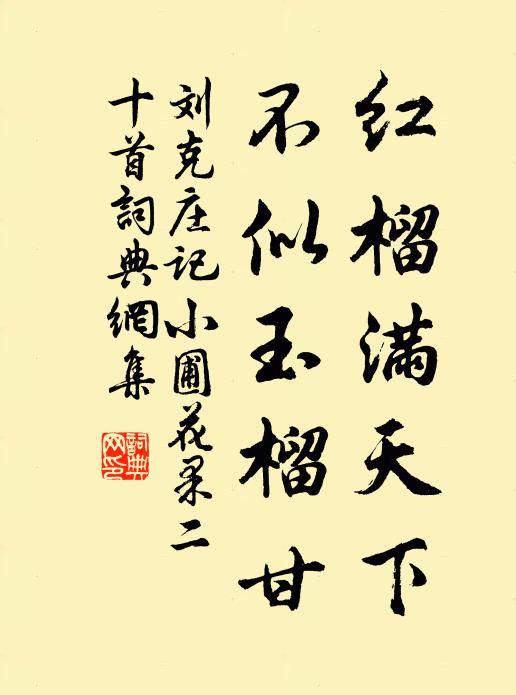 红榴满天下
不似玉榴甘
刘克庄记小圃花果二
十首詞典網集
詞典网印